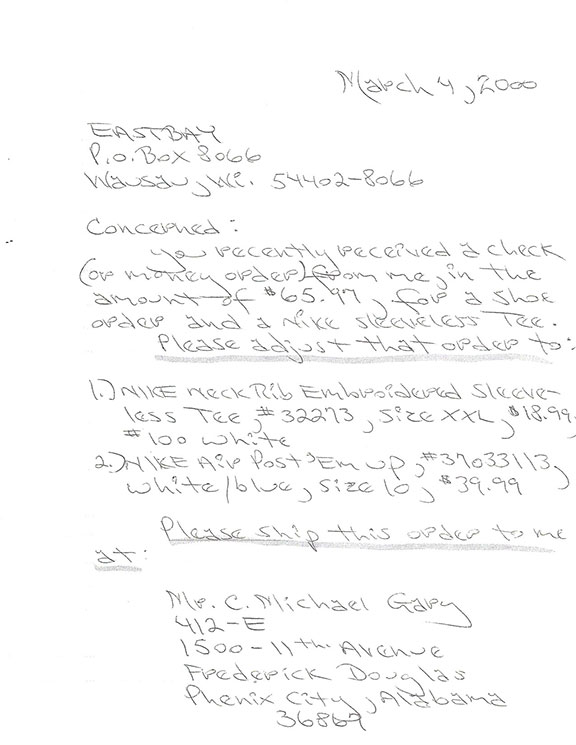 March 4, 2000
EASTBAY
P.O. Box 8066
Wausau, Wi. 54402-8066
Concerned:
you recently received a check
(or money order) from me, in the
amount of $65.97, for a shoe
order and a Nike sleeveless Tee.
Please adjust that order to:
1.) NIKE Neck Rib Embroidered Sleeve-
less Tee, #32273, size XXL, $18.99,
#100 white
2.) NIKE Air Post 'Em up, #37033113,
white/blue, size 10, $39.99
Please ship this order to me
at:
Mr. C. Michael Gary
412-E
1500-11th Avenue
Frederick Douglas
Phenix City, Alabama
36867